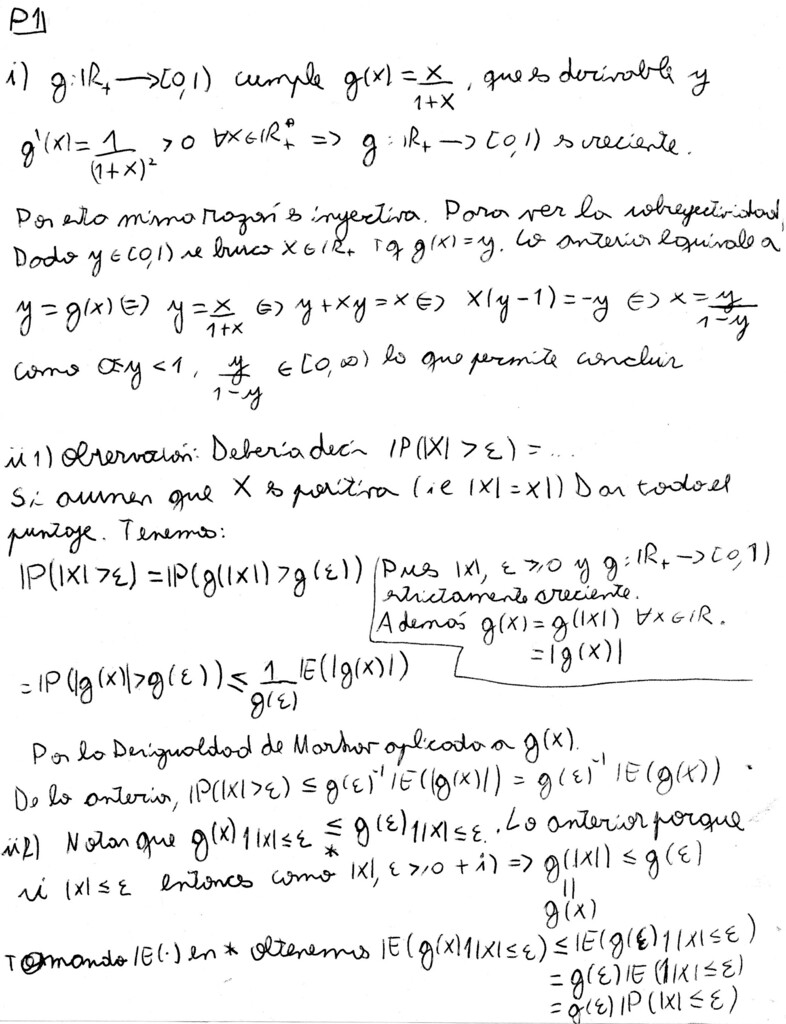 P1
i) g: ℝ₊ → [0,1) cumple g(x) = x/(1+x), que es derivable y
g'(x) = 1/(1+x)² > 0 ∀x∈ℝ₊* ⇒ g: ℝ₊ → [0,1) es creciente.
Por esta misma razón es inyectiva. Para ver la sobreyectividad,
Dado y ∈ [0,1) se busca x ∈ ℝ₊ tq g(x) = y. Lo anterior equivale a
y = g(x) ⇔ y = x/(1+x) ⇔ y + xy = x ⇔ x(y-1) = -y ⇔ x = y/(1-y)
como 0≤y<1, y/(1-y) ∈ [0,∞) lo que permite concluir
ii 1) Observación: Debería decir ℙ(|X| > ε) = ...
Si asumen que X es positiva (ie |X| = X|) Dar todo el
puntaje. Tenemos:
ℙ(|X| > ε) = ℙ(g(|X|) > g(ε)) Pues |x|, ε ≥ 0 y g: ℝ₊ → [0,1)
estrictamente creciente.
Además g(x) = g(|x|) ∀x∈ℝ.
= |g(x)|
= ℙ(|g(x)| > g(ε)) ≤ 1/g(ε) 𝔼(|g(x)|)
Por la Desigualdad de Markov aplicada a g(x).
De lo anterior, ℙ(|X| > ε) ≤ g(ε)⁻¹ 𝔼(|g(x)|) = g(ε)⁻¹ 𝔼(g(X)).
ii 2) Notar que g(x) 1|x|≤ε ≤* g(ε) 1|x|≤ε. Lo anterior porque
si |x| ≤ ε entonces como |x|, ε ≥ 0 + i) ⇒ g(|x|) ≤ g(ε)
||
g(x)
Tomando 𝔼(·) en * obtenemos 𝔼(g(x) 1|x|≤ε) ≤ 𝔼(g(ε) 1|x|≤ε)
= g(ε) 𝔼(1|x|≤ε)
= g(ε) ℙ(|x|≤ε)